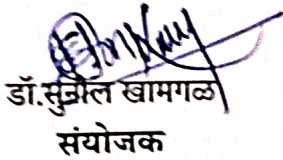 डॉ.सुनील खामगळ
संयोजक